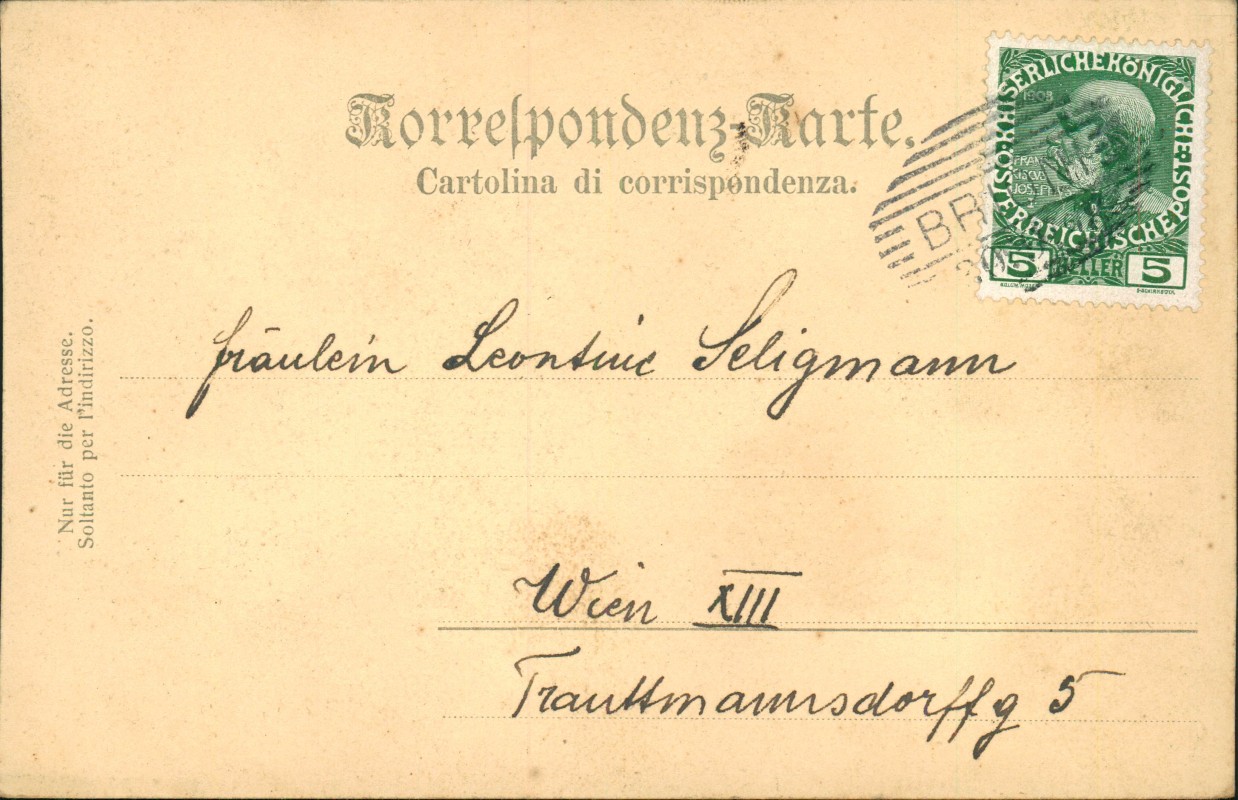 Korrespondenz-Karte.
Cartolina di corrispondenza.
KAISERLICHE KÖNIGLICHE ÖSTERREICHISCHE POST
1908
FRANCISCVS JOSEPHVS I
5 HELLER 5
Fräulein Leontine Seligmann
Wien XIII
Trauttmannsdorffg 5
Nur für die Adresse.
Soltanto per l'indirizzo.